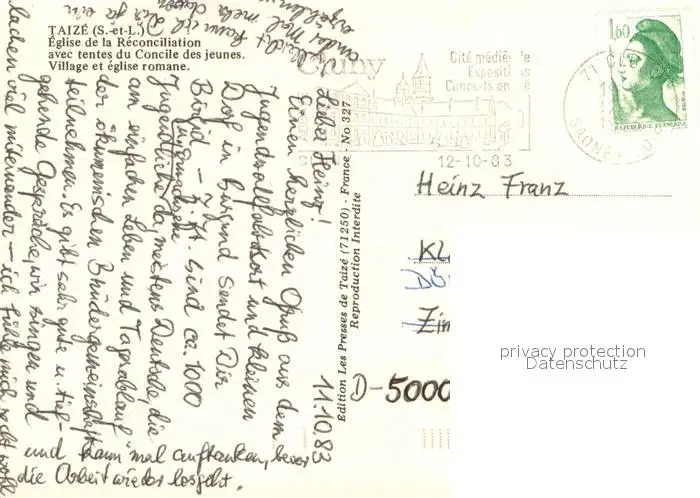 TAIZÉ (S.-et-L.)
Église de la Réconciliation
avec tentes du Concile des jeunes.
Village et église romane.
11.10.83
Liebe Heinz!
Einen herzlichen Gruß aus dem
Jugendwallfahrtsort und kleinen
Dorf in Burgund sendet Dir
Bird – z. Zt. sind ca. 1000
Jugendliche da, meistens Deutsche, die
am einfachen Leben und Tagesablauf
der ökumenischen Brüdergemeinschaft
teilnehmen. Es gibt sehr gute u. tief-
gehende Gespräche, wir singen und
lachen viel miteinander – ich fühle mich recht wohl
und kann mal auftanken, bevor
die Arbeit wieder losgeht.
Vielleicht kann ich Dir ja ein
ander Mal mehr davon
erzählen
Edition Les Presses de Taizé (71250) - France - No 327
Reproduction Interdite
Cluny
Cité médiévale
Expositi
Concerts en
12-10-83
71 CL
SAONE
1,60
REPUBLIQUE FRANÇAISE
Heinz Franz
KL
DÜ
Zin
D-5000
privacy protection
Datenschutz